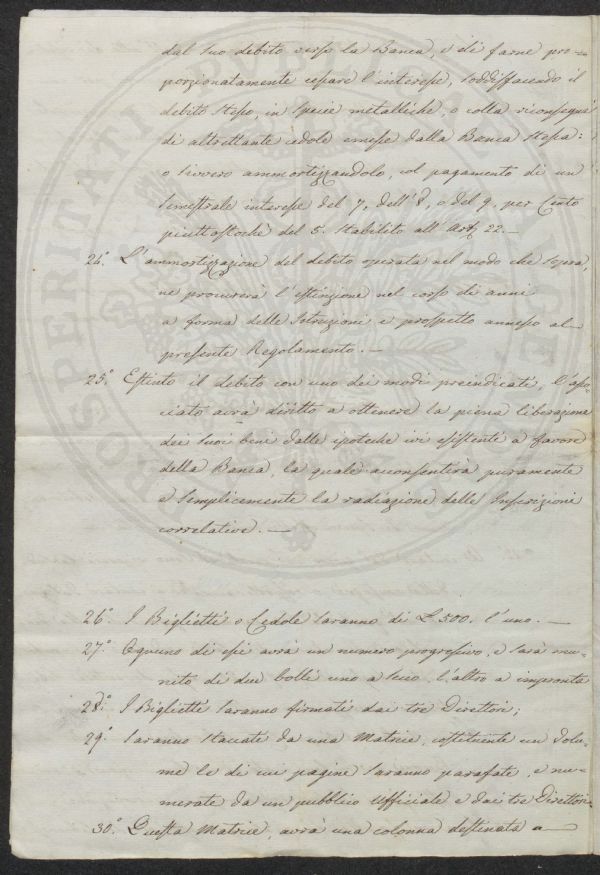 dal suo debito verso la Banca, e di farne pro=
porzionatamente cessare l'interesse, soddisfacendo il
debito stesso, in specie metalliche, o colla riconsegna
di altrettante cedole emesse dalla Banca stessa:
o sivvero ammortizzandolo, col pagamento di un
semestrale interesse del 7, dell'8, o del 9, per Cento
piuttostochè del 5. stabilito all'Art. 22.—
24.° L'ammortizzazione del debito operata nel modo che sopra,
ne procurerà l'estinzione nel corso di anni
a forma delle Istruzioni e prospetto annesso al—
presente Regolamento.—
25.° Estinto il debito con uno dei modi preindicati, l'asso
ciato avrà diritto a ottenere la piena liberazione
dei suoi beni dalle ipoteche ivi esistenti a favore
della Banca, la quale acconsentirà puramente
e semplicemente la radiazione delle Inscrizioni
correlative.—
26.° I Biglietti o Cedole saranno di £ 500. l'uno.—
27.° Ognuno di essi avrà un numero progressivo, e sarà mu=
nito di due bolli uno a secco, l'altro a impronta
28.° I Biglietti saranno firmati dai tre Direttori;
29.° saranno staccate da una Matrice, costituente un Volu=
me le di cui pagine saranno parafate, e nu=
merate da un pubblico Uffiziale e dai tre Direttori
30.° Questa Matrice, avrà una colonna destinata a—
PROSPERITATI PUBLICAE